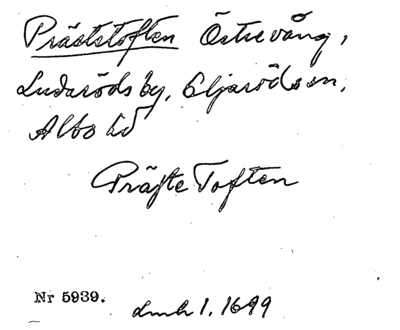 Präststoften Östre vång,
Ludaröds by, Eljaröds sn,
Albo hd
Präste Toften
Nr 5939. Lmh 1. 1699